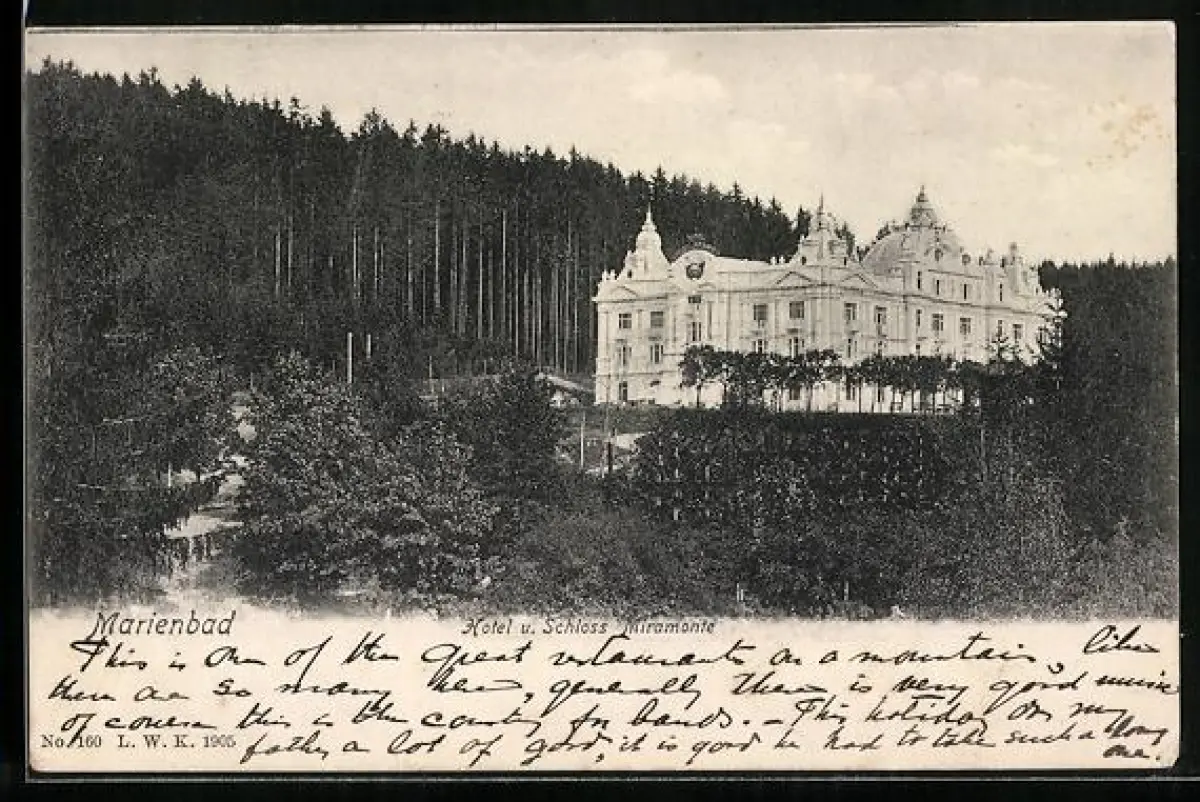 Marienbad
Hotel u. Schloss Miramonte
This is one of the great restaurants on a mountain, like
there are so many here, generally there is very good music
of course this is the country for bands. - This holiday does my
father a lot of good, it is good he had to take such a long
one.
No. 160 L. W. K. 1905